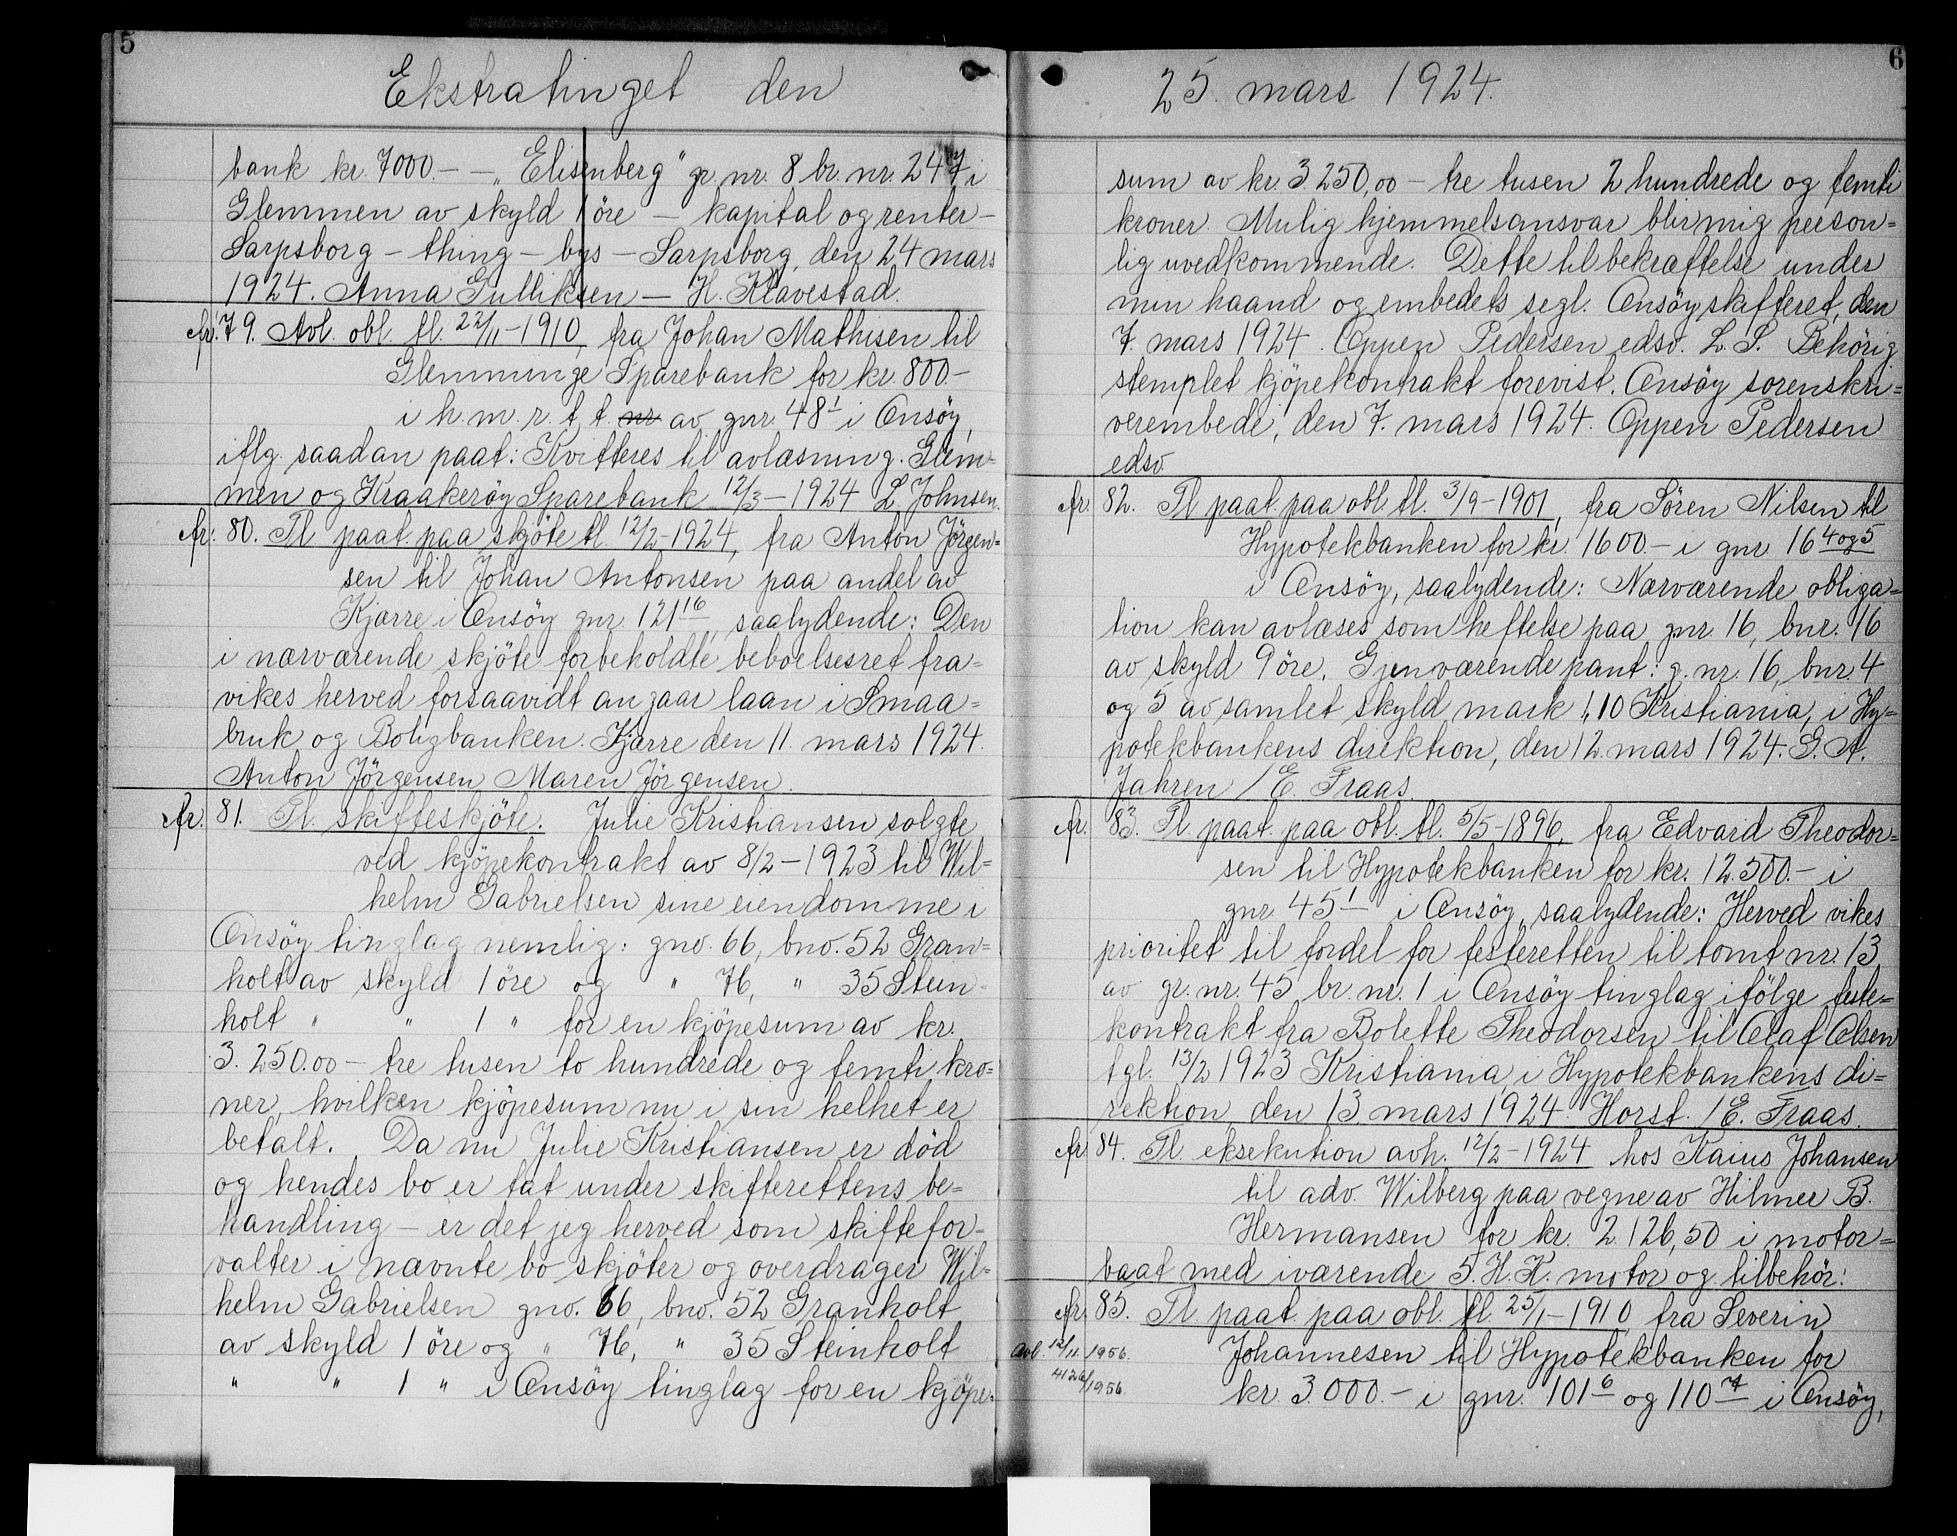 5
Ekstratinget den
bank kr. 7000.- – „Elisenberg" gr. nr. 8 br. nr. 247 i
Glemmen av skyld 1 öre – kapital og renter –
Sarpsborg – thing – bys – Sarpsborg, den 24 mars
1924. Anna Gulliksen – H. Klavestad.
fr. 79. Avl. obl. tl. 22/11-1910, fra Johan Mathisen til
Glemminge Sparebank for kr. 800.-
i h. m. r. t. t. nr av gnr. 48¹ i Onsöy,
iflg. saadan paat: Kvitteres til avlæsning. Glem=
men og Kraakeröy Sparebank 12/3-1924 L. Johnsen.
fr. 80. Tl paat. paa skjöte tl. 12/2-1924, fra Anton Jörgen=
sen til Johan Antonsen paa andel av
Kjærre i Onsöy gnr. 121¹⁶, saalydende: Den
i nærværende skjöte forbeholdte beboelsesret fra=
vikes herved forsaavidt angaar laan i Smaa=
bruk og Boligbanken. Kjærre den 11. mars 1924.
Anton Jörgensen Maren Jörgensen.
fr. 81. Tl. skifteskjöte. Julie Kristiansen solgte
ved kjöpekontrakt av 8/2-1923 til Wil=
helm Gabrielsen sine eiendomme i
Onsöy tinglag nemlig: gno. 66, bno. 52 Gran=
holt av skyld 1 öre og " 76, " 35 Stein
holt " " 1 " for en kjöpesum av kr.
3.250.00 – tre tusen to hundrede og femti kro=
ner, hvilken kjöpesum nu i sin helhet er
betalt. Da nu Julie Kristiansen er död
og hendes bo er tat under skifterettens be=
handling – er det jeg herved som skiftefor=
valter i nævnte bo skjöter og overdrager Wil=
helm Gabrielsen gno. 66, bno. 52 Granholt
av skyld 1 öre og " 76, " 35 Steinholt
" " 1 " i Onsöy tinglag for en kjöpe=
6
25. mars 1924.
sum av kr. 3.250,00 – tre tusen 2 hundrede og femti
kroner. Mulig hjemmelsansvar blir mig person=
lig uvedkommende. Dette til bekræftelse under
min haand og embedets segl. Onsöy skifteret, den
7. mars 1924. Oppen Pedersen edsv. L. S. Behörig
stemplet kjöpekontrakt forevist. Onsöy sorenskri=
verembede, den 7. mars 1924. Oppen Pedersen
edsv.
fr. 82. Tl paat. paa obl. tl. 3/9-1901, fra Sören Nilsen til
Hypotekbanken for kr. 1600.- i gnr. 16 4 og 5
i Onsöy, saalydende: Nærværende obliga=
tion kan avlæses som heftelse paa gnr. 16, bnr. 16
av skyld 9 öre. Gjenværende pant: g. nr. 16, bnr. 4
og 5 av samlet skyld mark 1,10 Kristiania, i Hy=
potekbankens direktion, den 12. mars 1924. G. A.
Jahren / E. Traas.
fr. 83. Tl. paat. paa obl. tl. 5/5-1896, fra Edvard Theodor=
sen til Hypotekbanken for kr. 12.500.- i
gnr. 45¹ i Onsöy, saalydende: Herved vikes
prioritet til fordel for festeretten til tomt nr. 13
av gr. nr. 45 br. nr. 1 i Onsöy tinglag ifölge feste=
kontrakt fra Bolette Theodorsen til Olaf Olsen
tgl. 13/2 1923 Kristiania i Hypotekbankens di=
rektion, den 13. mars 1924. Horst. / E. Traas.
fr. 84. Tl. eksekution avh. 12/2-1924 hos Kaius Johansen
til adv. Wilberg paa vegne av Hilmer B.
Hermansen for kr. 2126,50 i motor=
baat med iværende 5. H. K. motor og tilbehör.
fr. 85. Tl paat. paa obl. tl 25/1-1910 fra Severin
avl. 12/11 1956. Johannesen til Hypotekbanken for
4126/1956. kr. 3.000.- i gnr. 101⁶ og 110⁷ i Onsöy,